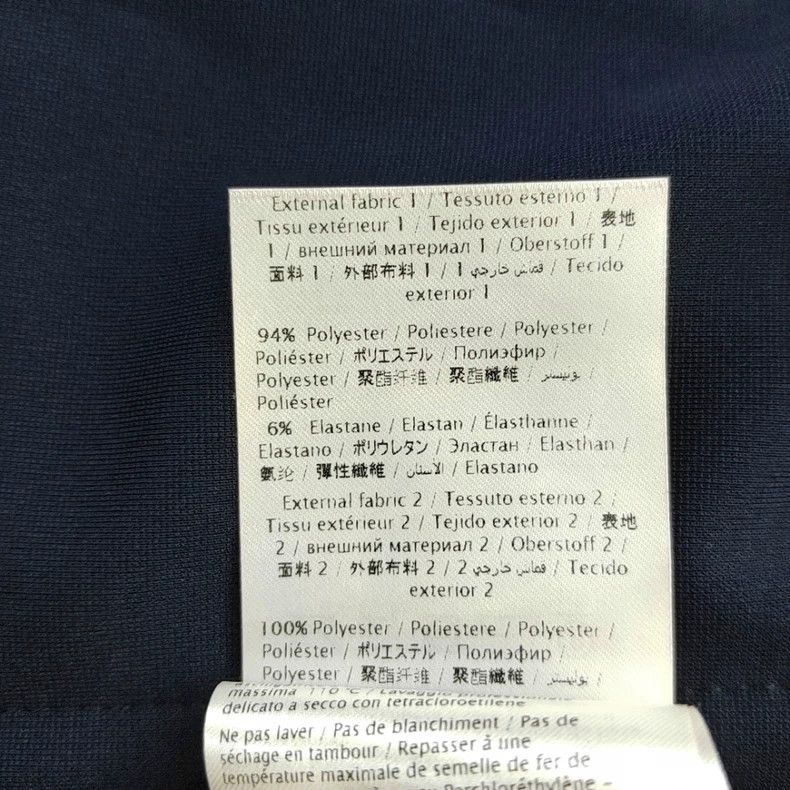 External fabric 1 / Tessuto esterno 1 /
Tissu extérieur 1 / Tejido exterior 1 / 表地
1 / внешний материал 1 / Oberstoff 1 /
面料 1 / 外部布料 1 / 1 قماش خارجي / Tecido
exterior 1
94% Polyester / Poliestere / Polyester /
Poliéster / ポリエステル / Полиэфир /
Polyester / 聚酯纤维 / 聚酯纖維 / بوليستر /
Poliéster
6% Elastane / Elastan / Élasthanne /
Elastano / ポリウレタン / Эластан / Elasthan /
氨纶 / 彈性纖維 / الاستان / Elastano
External fabric 2 / Tessuto esterno 2 /
Tissu extérieur 2 / Tejido exterior 2 / 表地
2 / внешний материал 2 / Oberstoff 2 /
面料 2 / 外部布料 2 / 2 قماش خارجي / Tecido
exterior 2
100% Polyester / Poliestere / Polyester /
Poliéster / ポリエステル / Полиэфир /
Polyester / 聚酯纤维 / 聚酯纖維 / بوليستر /
massima 110°C / Lavaggio professionale
delicato a secco con tetracloroetilene
Ne pas laver / Pas de blanchiment / Pas de
séchage en tambour / Repasser à une
température maximale de semelle de fer de
Perchloréthylène -